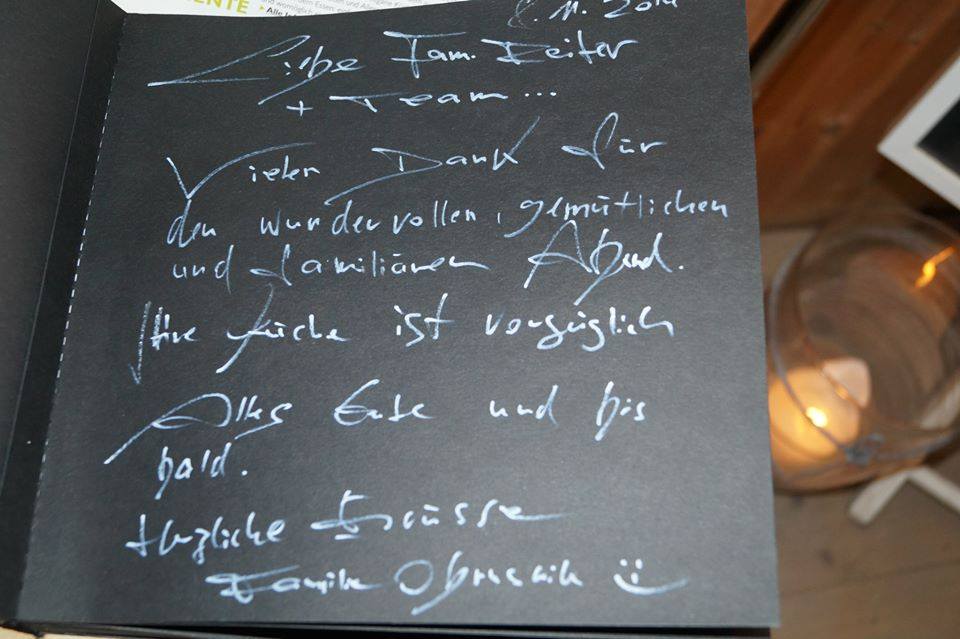 ENTE
Alle
.11.
Liebe Fam. Reiter
+ Team...
Vielen Dank für
den wundervollen, gemütlichen
und familiären Abend.
Ihre Küche ist vorzüglich
Alles Gute und bis
bald.
Herzliche Grüsse
Familie